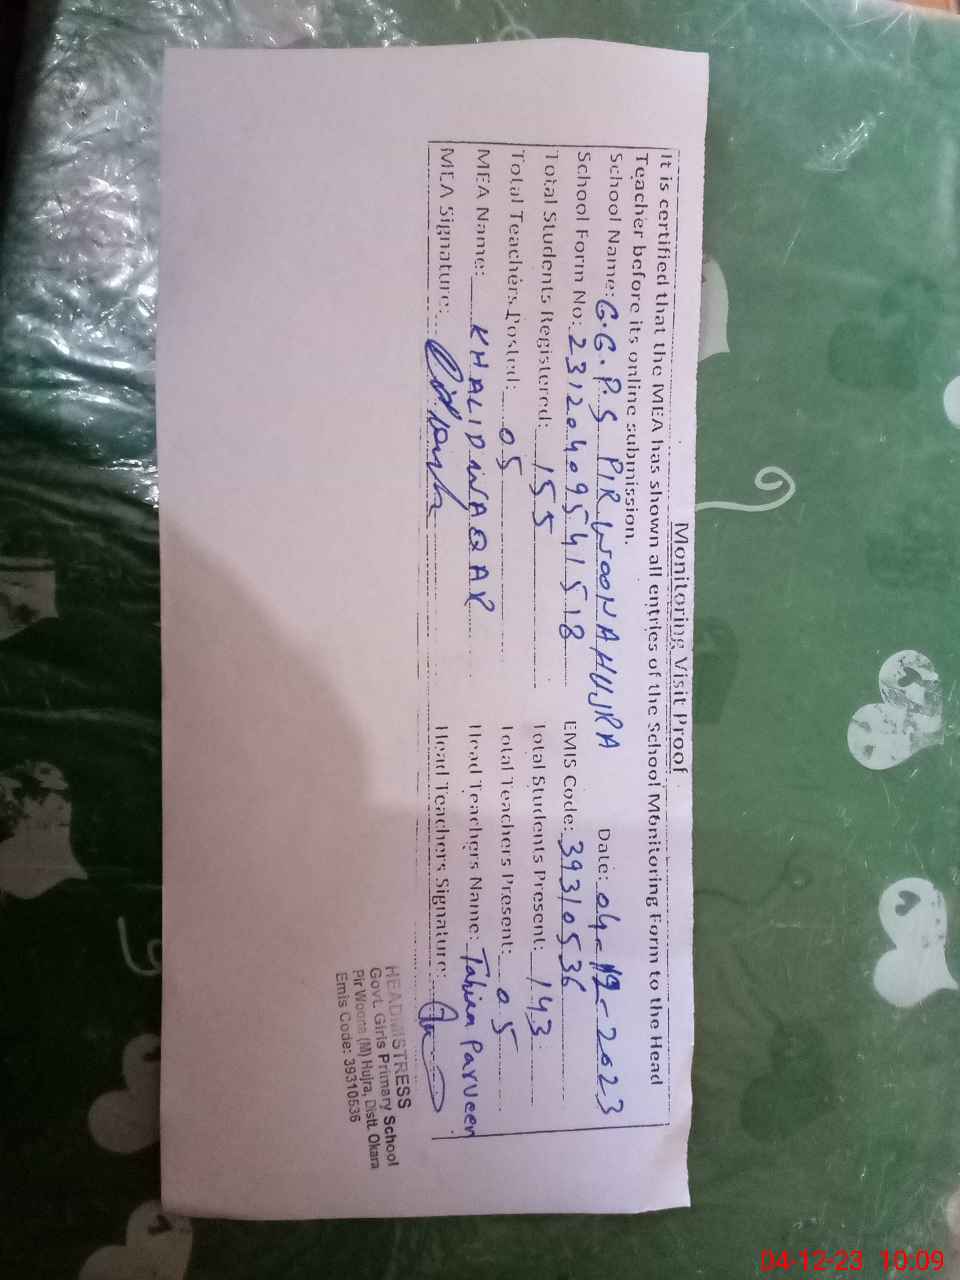 Monitoring Visit Proof
It is certified that the MEA has shown all entries of the School Monitoring Form to the Head
Teacher before its online submission.
School Name: G.G.P.S PIR WOONA HUJRA Date: 04-12-2023
School Form No: 23120409541518 EMIS Code: 39310536
Total Students Registered: 155 Total Students Present: 143
Total Teachers Posted: 05 Total Teachers Present: 05
MEA Name: KHALID WAQAR Head Teachers Name: Parveen
MEA Signature: Head Teachers Signature:
HEADMISTRESS
Govt. Girls Primary School
Pir Woona (M) Hujra, Distt. Okara
Emis Code: 39310536
04-12-23 10:09